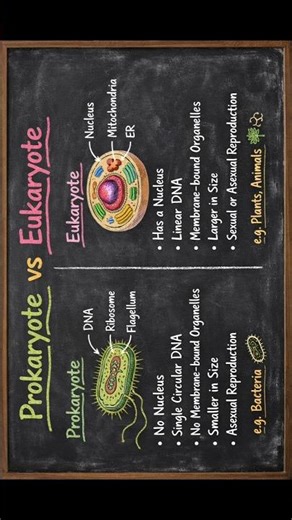 Prokaryote vs Eukaryote
Prokaryote
DNA
Ribosome
Flagellum
• No Nucleus
• Single Circular DNA
• No Membrane-bound Organelles
• Smaller in Size
• Asexual Reproduction
e.g. Bacteria
Eukaryote
Nucleus
Mitochondria
ER
• Has a Nucleus
• Linear DNA
• Membrane-bound Organelles
• Larger in Size
• Sexual or Asexual Reproduction
e.g. Plants, Animals